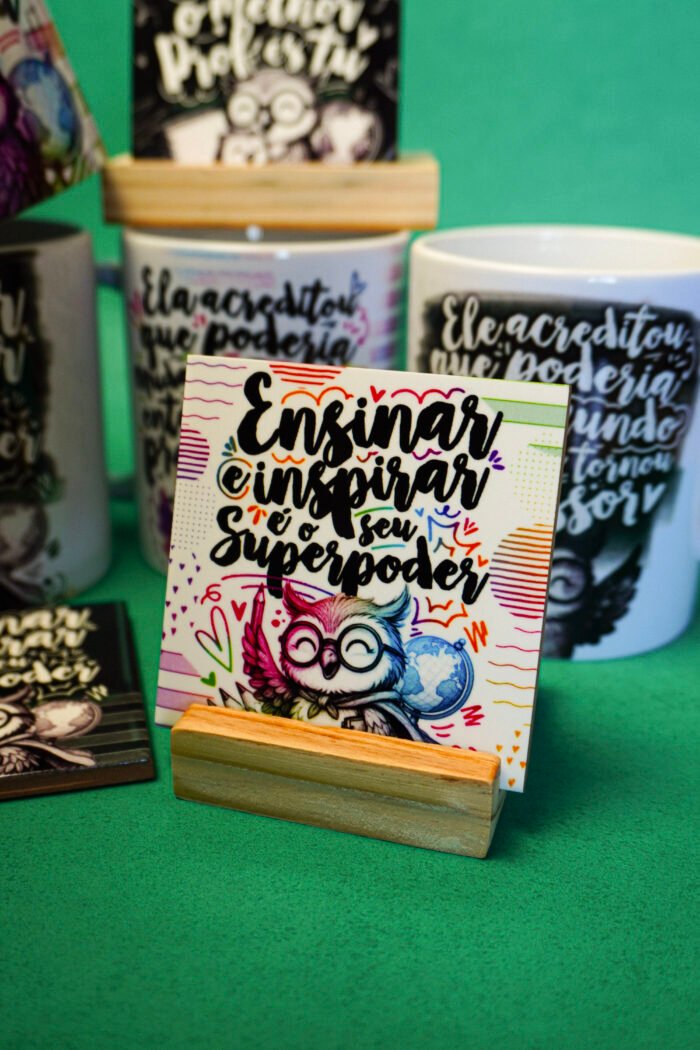 o Melhor
Prof és tu
Ela acreditou
que poderia
Ele acreditou
que poderia
undo
tornou
sor
Ensinar
e inspirar
é o seu
Superpoder